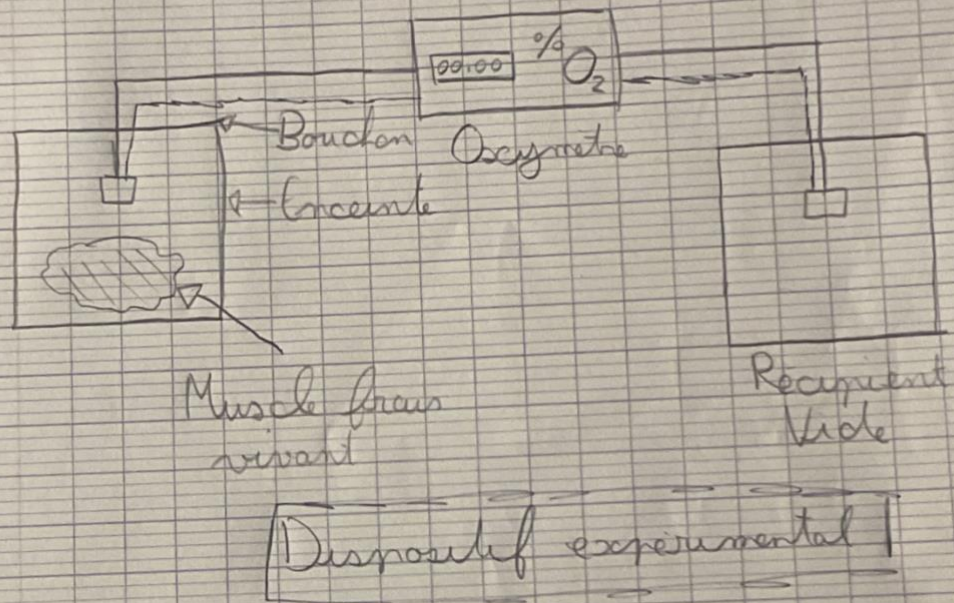 00.00
% O₂
Bouchon
Oxymetre
Enceinte
Muscle frais
vivant
Récipient
Vide
Dispositif expérimental